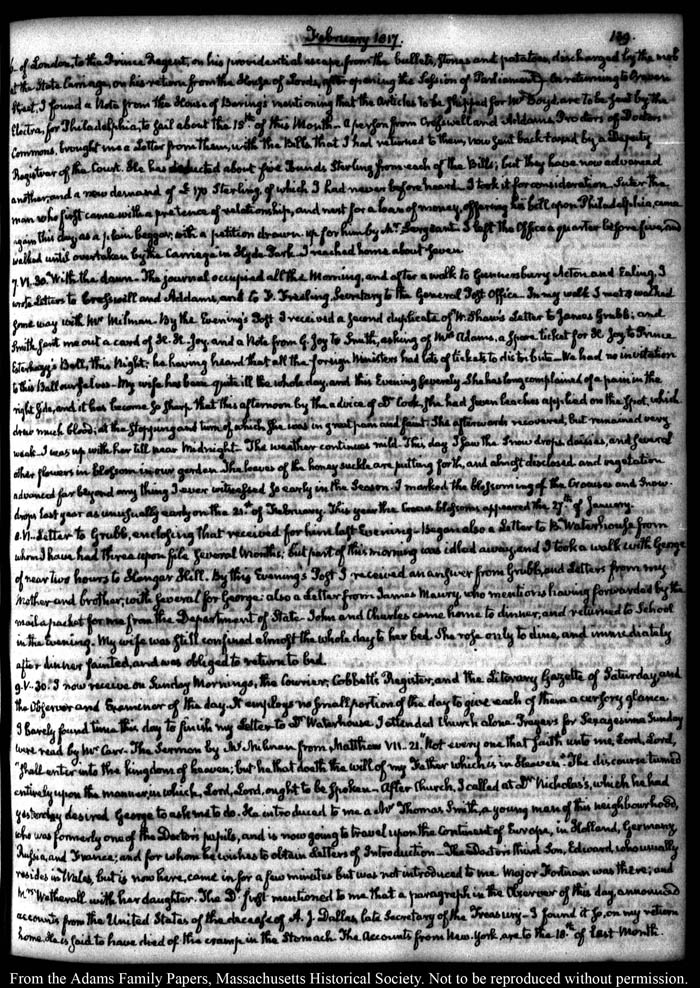 February 1817.
139.
of London, to the Prince Regent, on his providential escape from the bullets, stones and potatoes, discharged by the mob
at the State carriage, on his return from the House of Lords, after opening the Session of Parliament) On returning to Craven
Street, I found a Note from the House of Barings mentioning that the Articles to be shipped for Mr Boyd, are to be sent by the
Electra, for Philadelphia, to sail about the 15th of this Month. A person from Cresswell and Addams, Proctors of Doctors
Commons, brought me a Letter from them, with the Bills that I had returned to them, now sent back taxed by a Deputy
Registrar of the Court. He has deducted about five Pounds Sterling from each of the Bills; but they have now advanced
another, and a new demand of £170 Sterling, of which I had never before heard. I took it for consideration. the
man who first came with a pretence of relationship, and next for a loan of money, offering his bill upon Philadelphia, came
again this day, as a plain beggar, with a petition drawn up for him by Mr Sergeant. I left the Office a quarter before five, and
walked until overtaken by the Carriage in Hyde Park. I reached home about seven.
7. VI. 30. With the dawn. The journal occupied all the Morning, and after a walk to Gunnersbury Acton and Ealing, I
wrote Letters to Cresswell and Addams, and to F. Freeling, Secretary to the General Post Office. In my walk I met & walked
some way with Mr Milman. By the Evening's Post I received a second duplicate of W. Shaw's Letter to James Grubb; and
Smith sent me out a card of H. H. Joy, and a Note from G. Joy to Smith, asking of Mrs Adams, a spare ticket for H. Joy to Prince
Esterhazy's Ball, this Night; he having heard that all the foreign Ministers had lots of tickets to distribute. We had no invitation
to this Ball ourselves. My wife has been quite ill the whole day, and this Evening severely. She has long complained of a pain in the
right side, and it has become so sharp that this afternoon by the advice of Dr Cook, she had seven leaches applied on the spot, which
drew much blood; at the stopping and turn of which she was in great pain and faint. She afterwards recovered, but remained very
weak. I was up with her till near Midnight. The weather continues mild. This day I saw the Snow drops, daisies, and several
other flowers in blossom in our garden. The leaves of the honey suckle are putting forth, and almost disclosed and vegetation
advanced far beyond any thing I ever witnessed so early in the Season. I marked the blossoming of the Crocuses and Snow-
drops last year as unusually early on the 21st of February. This year the Crocus blossoms appeared the 27th of January.
8. VI. Letter to Grubb, enclosing that received for him last Evening. Began also a Letter to B. Waterhouse, from
whom I have had three upon file several Months; but part of this morning was idled away, and I took a walk with George
of near two hours to Hangar Hill. By this Evening's Post I received an answer from Grubb, and Letters from my
Mother and brother, with several for George: also a letter from James Maury, who mentions having forwarded by the
mail a packet for me from the Department of State. John and Charles came home to dinner, and returned to School
in the Evening. My wife was still confined almost the whole day to her bed. She rose only to dine, and immediately
after dinner fainted, and was obliged to return to bed.
9. V. 30. I now receive on Sunday Mornings, the Courier, Cobbett's Register, and the Literary Gazette of Saturday, and
the Observer and Examiner of the day. It employs no small portion of the day to give each of them a cursory glance
I barely found time this day to finish my Letter to Dr Waterhouse. I attended Church alone. Prayers for Sexagesima Sunday
were read by Mr Carr. The Sermon by Mr Milman from Matthew VII. 21. "Not every one that saith unto me, Lord, Lord,
"shall enter into the kingdom of heaven; but he that doeth the will of my Father which is in Heaven." The discourse turned
entirely upon the manner, in which, Lord, Lord, ought to be spoken. After Church, I called at Dr Nicholas's, which he had
yesterday desired George to ask me to do. He introduced to me a Mr Thomas Smith, a young man of this neighbourhood,
who was formerly one of the Doctors pupils, and is now going to travel upon the Continent of Europe, in Holland, Germany,
Russia, and France; and for whom he wishes to obtain Letters of Introduction. The Doctors third Son, Edward, who usually
resides in Wales, but is now here, came in for a few minutes but was not introduced to me. Major was there; and
Mrs Watherall with her daughter. The Dr first mentioned to me that a paragraph in the Observer of this day, announced
accounts from the United States of the decease of A. J. Dallas, late Secretary of the Treasury. I found it so, on my return
home. He is said to have died of the cramp in the Stomach. The Accounts from New-York are to the 18th of last Month.
From the Adams Family Papers, Massachusetts Historical Society. Not to be reproduced without permission.